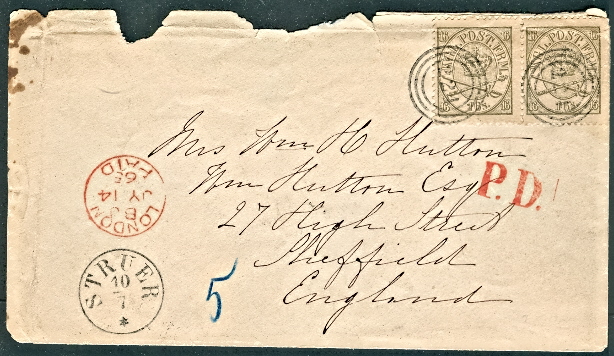 KGL POST FRM
16 16
S
Mrs Wm H Hutton
Wm Hutton Esq
27 High Street
Sheffield
England
P.D.
LONDON
BJ
JY 14
65
PAID
STRUER
10
7
5